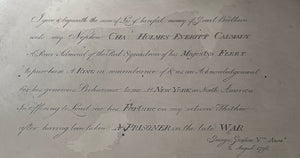 I give & bequeath the sum of £50 of lawful money of Great Brittain
unto my Nephew CHAs HOLMES EVERITT CALMADY
A Rear Admiral of the Red Squadron of his MAJESTYS FLEET
to purchase A RING in remembrance of me an Acknowledgement
for his generous Behaviour to me At NEW YORK in North America
In offering to Lend me his PURSE on my return Thither
after having been taken A PRISONER in the late WAR
August 1796